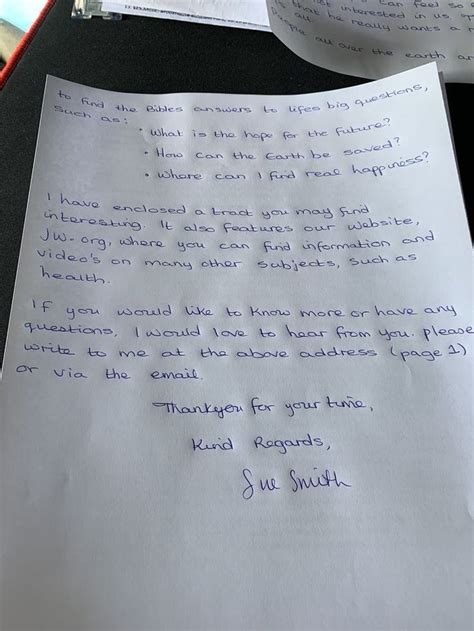 can feel so
not interested in us
he really wants a
people all over the earth ar
to find the Bibles answers to lifes big questions,
such as:
• What is the hope for the future?
• How can the Earth be saved?
• Where can I find real happiness?
I have enclosed a tract you may find
interesting. It also features our website,
JW.org, where you can find information and
video's on many other subjects, such as
health.
If you would like to know more or have any
questions, I would love to hear from you. please
write to me at the above address (page 1)
or via the email.
Thankyou for your time,
Kind Regards,
Sue Smith